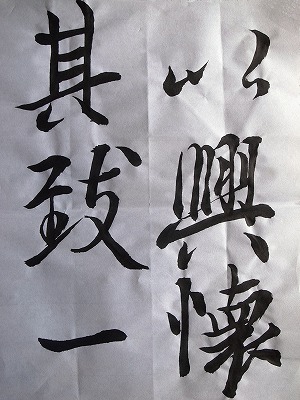 以興懐
其致一